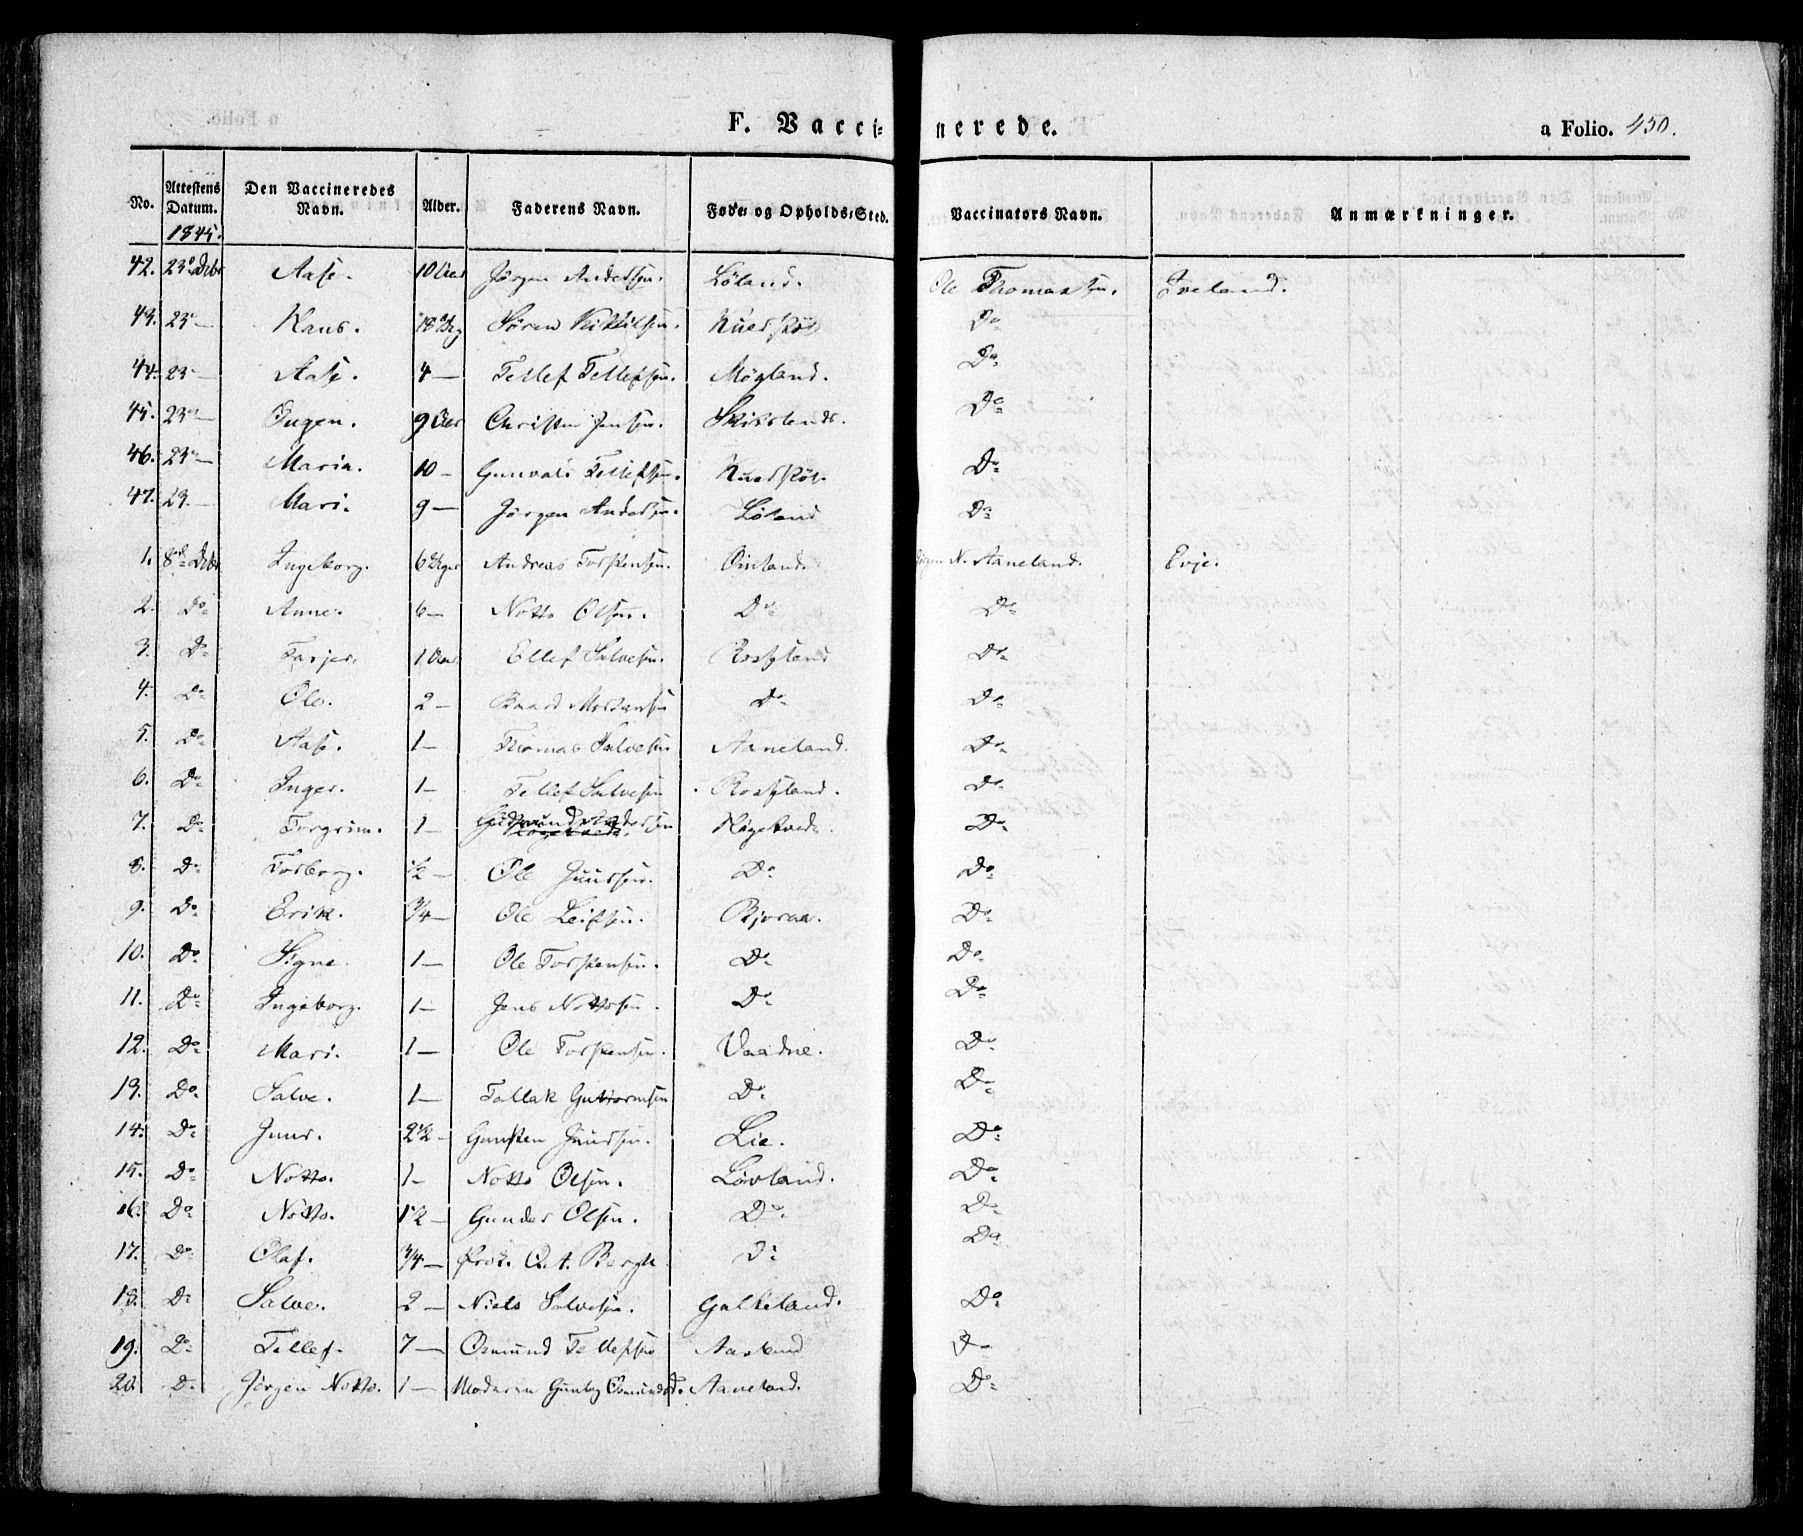 F. Vaccinerede. a Folio. 450.
No. Attestens Datum. Den Vaccineredes Navn. Alder. Faderens Navn. Føde- og Opholds-Sted. Vaccinators Navn. Anmærkninger.
1845.
42. 23d Debr Aase. 10 Uger Jørgen Andersen. Løland. Ole Thomassen. Iveland.
43. 23d — 18 Uger Søren Do
44. 23d — Aase. 4 — Tellef Tellefsen. Møgland. Do
45. 23d — Ingen. 9 Christen Jensen. Skisland. Do
46. 23d — Maria. 10 — Gunvald Tellefsen. Do
47. 23. — Mari. 9 — Jørgen Andersen. Løland Do
1. 8de Debr Ingeborg. 6 Uger Andreas Torkensen. N. Aaneland. Evje.
2. Do Anne. 6 — Notto Olsen. Do Do
3. Do Tarjer. 1 Aar Ellef Salvesen. Rosseland Do
4. Do Ole. 2 — Baard Mortensen Do Do
5. Do Aase. 1 — Thomas Salvesen Aaneland. Do
6. Do Inger. 1 — Tellef Salvesen Rosseland. Do
7. Do Torgrim. 1 — Gudmund Andersen Do
8. Do Torborg. 1/2 — Ole Juursen. Do Do
9. Do Erik. 3/4 — Ole Leifsen. Bjoraa. Do
10. Do Signe. 1 — Ole Torkensen. Do Do
11. Do Ingeborg. 1 — Jens Nottosen. Do Do
12. Do Mari. 1 — Ole Torkensen. Vaadne. Do
13. Do Salve. 1 — Tallak Guttormsen Do Do
14. Do 2 1/2 — Lie. Do
15. Do Notto. 1 — Notto Olsen. Løvland. Do
16. Do Notto. 1 1/2 — Gunder Olsen. Do Do
17. Do Olaf. 3/4 — Bergh Do Do
18. Do Salve. 2 — Niels Salvesen. Galteland. Do
19. Do Tellef. 7 — Osmund Tellefsen Do
20. Do Jørgen Notto. 1 — Moderen Gunbg Osmundsd. Aaneland. Do